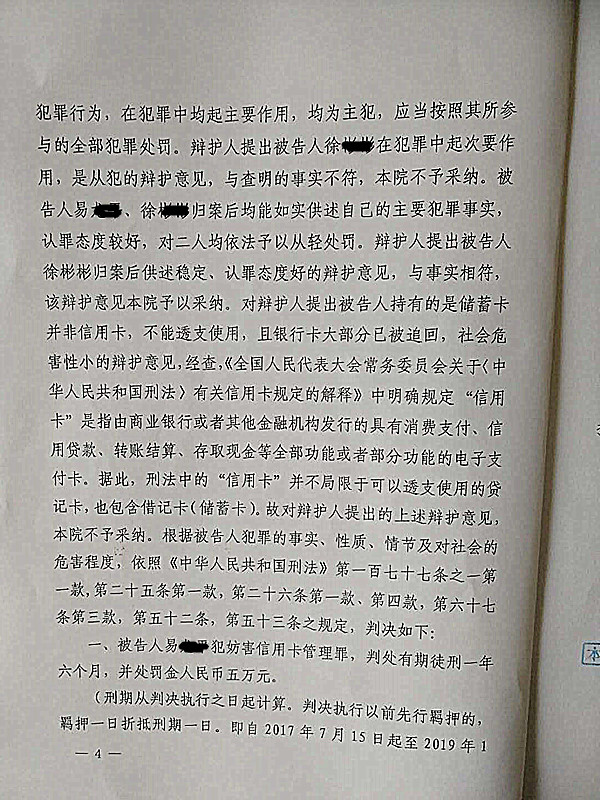 犯罪行为，在犯罪中均起主要作用，均为主犯，应当按照其所参
与的全部犯罪处罚。辩护人提出被告人徐在犯罪中起次要作
用，是从犯的辩护意见，与查明的事实不符，本院不予采纳。被
告人易、徐归案后均能如实供述自己的主要犯罪事实，
认罪态度较好，对二人均依法予以从轻处罚。辩护人提出被告人
徐彬彬归案后供述稳定、认罪态度好的辩护意见，与事实相符，
该辩护意见本院予以采纳。对辩护人提出被告人持有的是储蓄卡
并非信用卡，不能透支使用，且银行卡大部分已被追回，社会危
害性小的辩护意见，经查，《全国人民代表大会常务委员会关于〈中
华人民共和国刑法〉有关信用卡规定的解释》中明确规定“信用
卡”是指由商业银行或者其他金融机构发行的具有消费支付、信
用贷款、转账结算、存取现金等全部功能或者部分功能的电子支
付卡。据此，刑法中的“信用卡”并不局限于可以透支使用的贷
记卡，也包含借记卡（储蓄卡）。故对辩护人提出的上述辩护意见，
本院不予采纳。根据被告人犯罪的事实、性质、情节及对社会的
危害程度，依照《中华人民共和国刑法》第一百七十七条之一第
一款，第二十五条第一款，第二十六条第一款、第四款，第六十七
条第三款，第五十二条，第五十三条之规定，判决如下：
一、被告人易犯妨害信用卡管理罪，判处有期徒刑一年
六个月，并处罚金人民币五万元。
（刑期从判决执行之日起计算。判决执行以前先行羁押的，
羁押一日折抵刑期一日。即自2017年7月15日起至2019年1
— 4 —
本